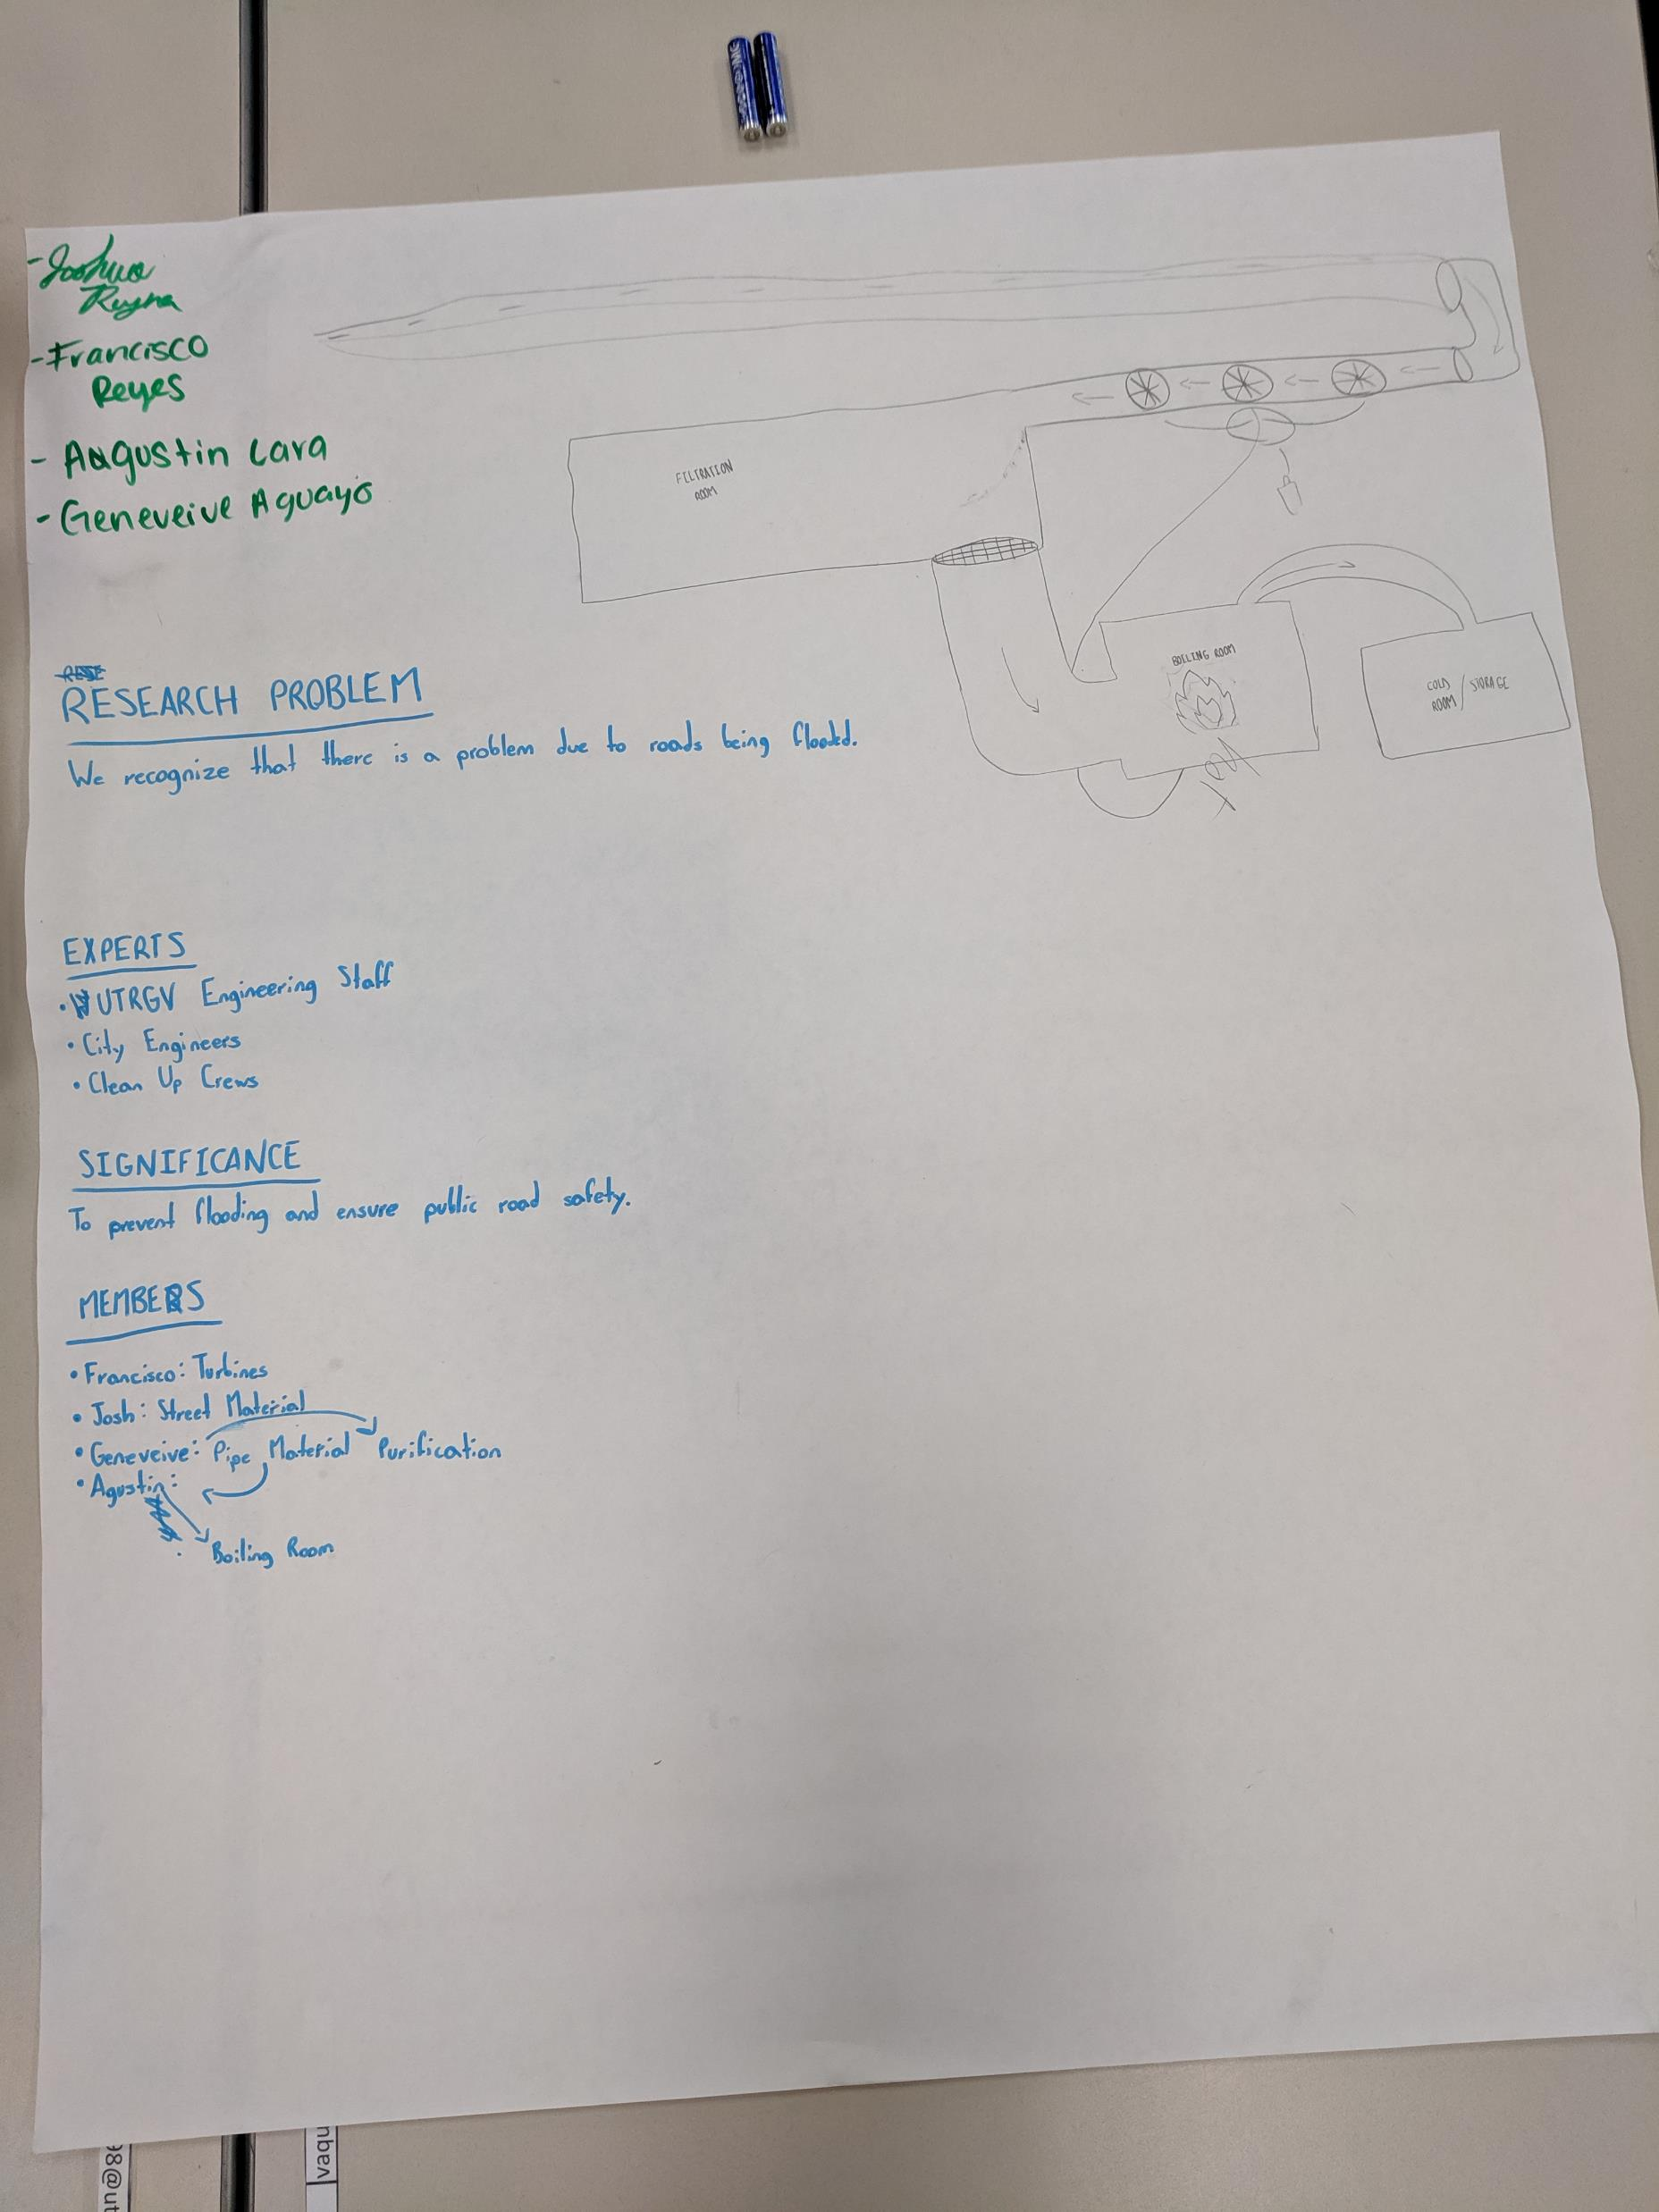 - Joshua
Reyna
- Francisco
Reyes
- Augustin Lara
- Geneveive Aguayo
FILTRATION
ROOM
BOILING ROOM
COLD
ROOM / STORAGE
RESEARCH PROBLEM
We recognize that there is a problem due to roads being flooded.
EXPERTS
• UTRGV Engineering Staff
• City Engineers
• Clean Up Crews
SIGNIFICANCE
To prevent flooding and ensure public road safety.
MEMBERS
• Francisco: Turbines
• Josh: Street Material
• Geneveive: Pipe Material Purification
• Agustin:
Boiling Room
98@ut
vaqu